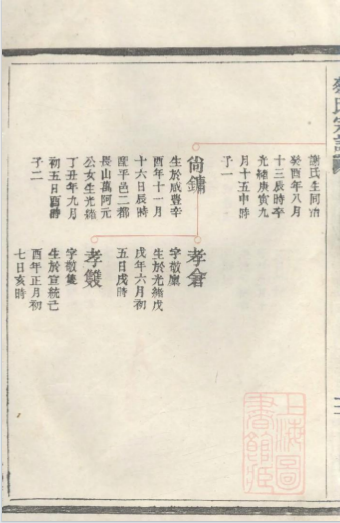 謝氏生同治
癸酉年八月
十三辰時卒
光緒庚寅九
月十五申時
子一
尙鏞
生於咸豐辛
酉年十一月
十六日辰時
娶平邑二都
長山萬阿元
公女生光緒
丁丑年九月
初五日酉時
子二
孝倉
字敬廩
生於光緒戊
戌年六月初
五日戌時
孝雙
字敬隻
生於宣統己
酉年正月初
七日亥時
氏宗譜
上海圖
書館藏